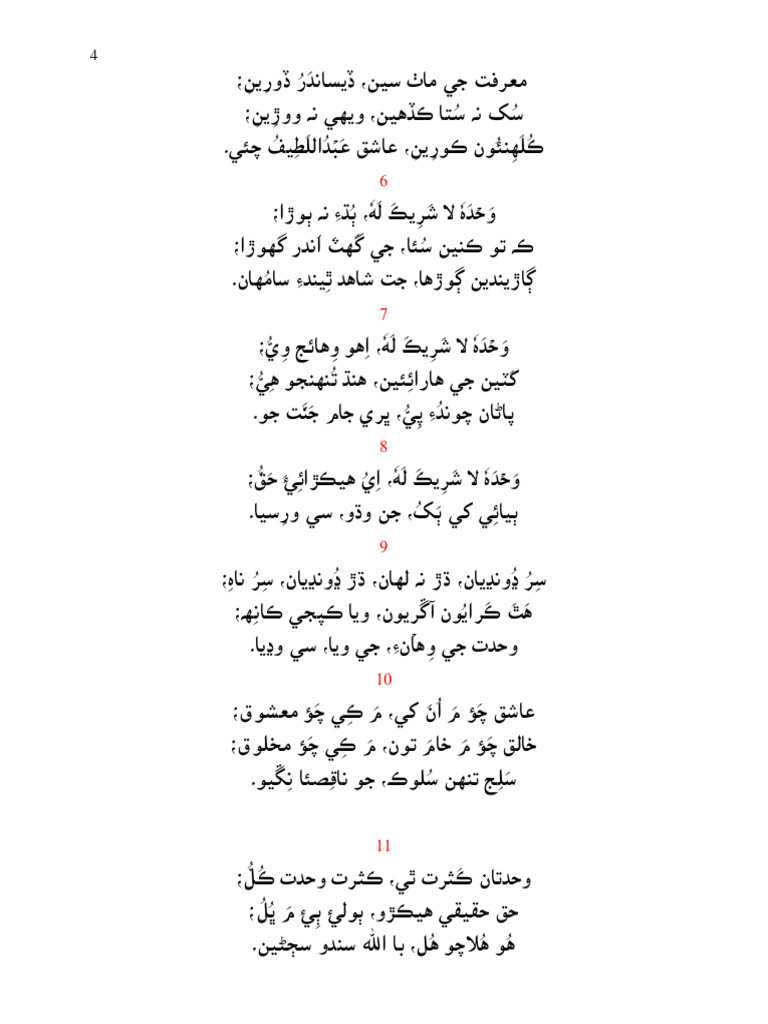 4
معرفت جي ماٺ سين، ڏيساندَرُ ڏورِينِ؛
سُک نہ سُتا ڪڏهين، ويهي نہ ووڙِينِ؛
ڪُلَهِنئُون ڪورِينِ، عاشق عَبْدُاللَطِيفُ چئي.
6
وَحْدَہٗ لا شَرِيڪَ لَہٗ، ٻُڌءِ نہ ٻوڙا؛
ڪہ تو ڪنين سُئا، جي گَهٽَ اَندر گهوڙا؛
ڳاڙيندين ڳوڙها، جت شاهد ٿِيندءِ سامُهان.
7
وَحْدَہٗ لا شَرِيڪَ لَہٗ، اِهو وِهائج وِيُّ؛
کَٽين جي هارائِئين، هنڌ تُنهنجو هِيُّ؛
پاڻان چوندُءِ پِيُّ، ڀري جام جَنَّت جو.
8
وَحْدَہٗ لا شَرِيڪَ لَہٗ، اِيُ هيڪڙائِيَ حَقُّ؛
ٻيائِي کي ٻَکُ، جن وڌو، سي ورِسيا.
9
سِرُ ڍُونڍِيان، ڌڙ نہ لهان، ڌڙ ڍُونڍِيان، سِرُ ناهِ؛
هَٿَ ڪَرايُون آڱريون، ويا ڪپجي ڪانِهہ؛
وحدت جي وِهاَنءِ، جي ويا، سي وڍيا.
10
عاشق چَؤ مَ اُنَ کي، مَ ڪِي چَؤ معشوق؛
خالق چَؤ مَ خامَ تون، مَ ڪِي چَؤ مخلوق؛
سَلِج تنهن سُلوڪ، جو ناقِصئا نِڱيو.
11
وحدتان ڪَثرت ٿي، ڪثرت وحدت ڪُلُّ؛
حق حقيقي هيڪڙو، ٻوليَ ٻِيَ مَ ڀُلُ؛
هُو هُلاچو هُل، با الله سندو سڄڻين.